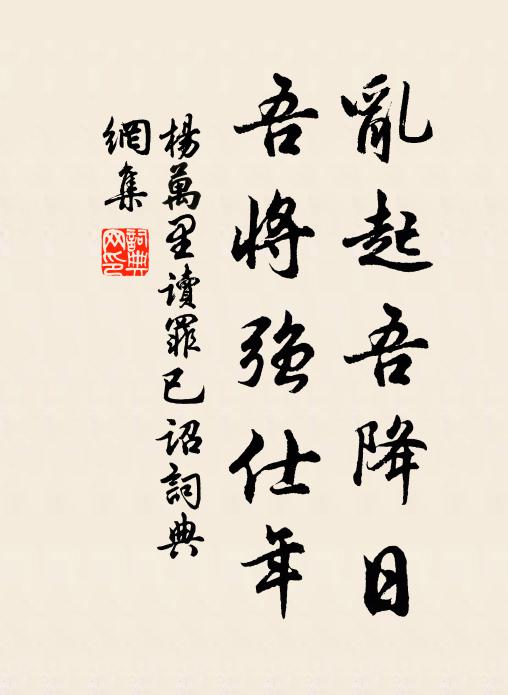 亂起吾降日
吾將強仕年
楊萬里讀罪已詔詞典
網集
詞典
网印